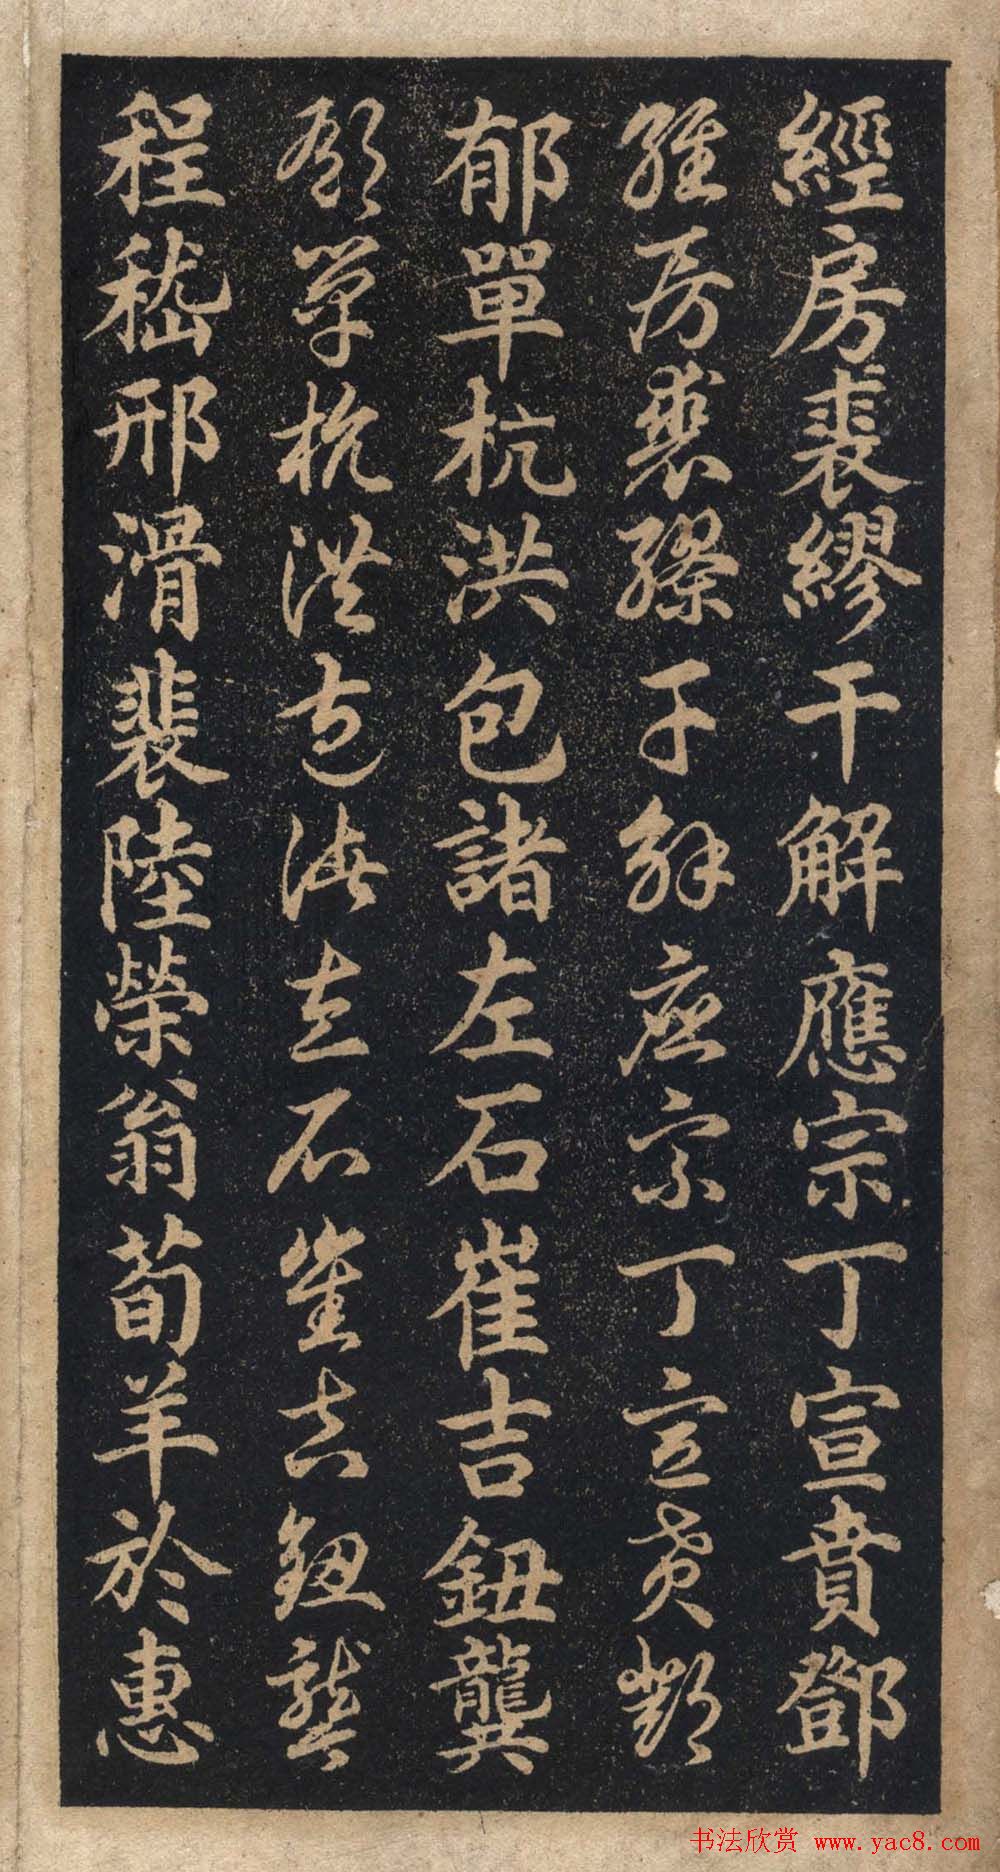 經房裘繆干解應宗丁宣賁鄧
經房裘繆干解應宗丁宣賁鄧
郁單杭洪包諸左石崔吉鈕龔
郁單杭洪包諸左石崔吉鈕龔
程嵇邢滑裴陸榮翁荀羊於惠
书法欣赏 www.yac8.com